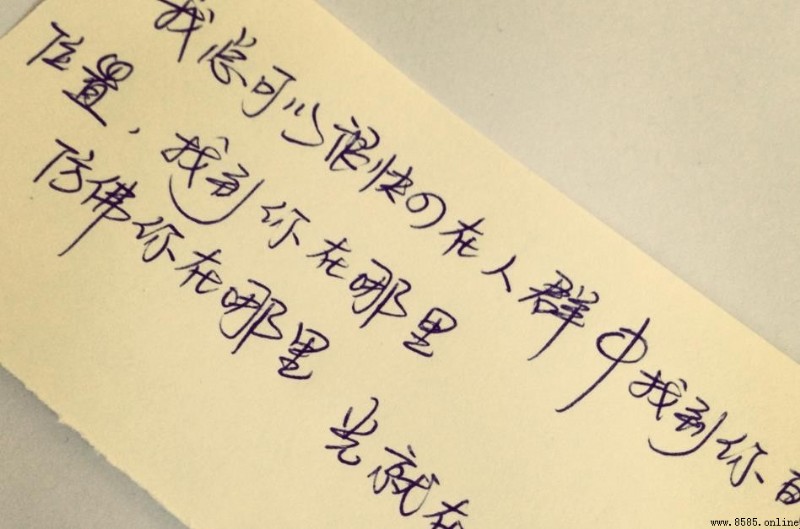 我总可以很快的在人群中找到你
位置，找到你在哪里
仿佛你在哪里
光就在
www.8585.online